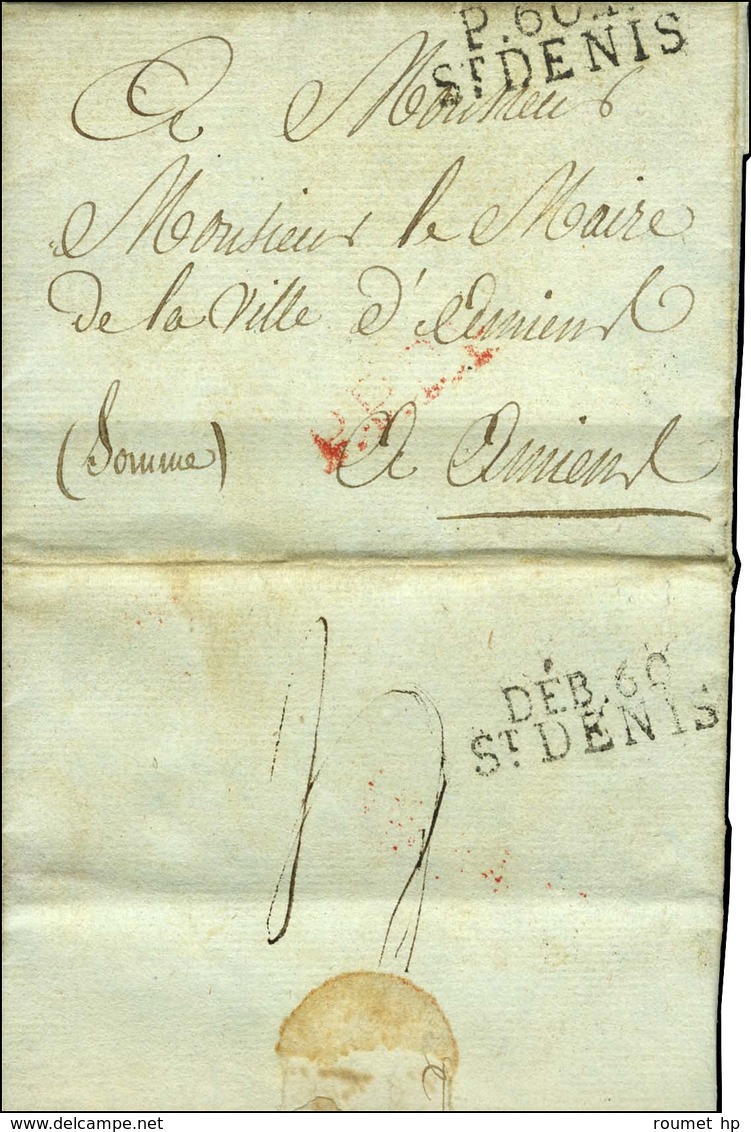 P.60.P.
ST DENIS
A Monsieur
Monsieur le Maire
de la Ville d'Amiens
P.P.
(Somme) A Amiens
DÉB. 60
ST. DENIS
roumet hp